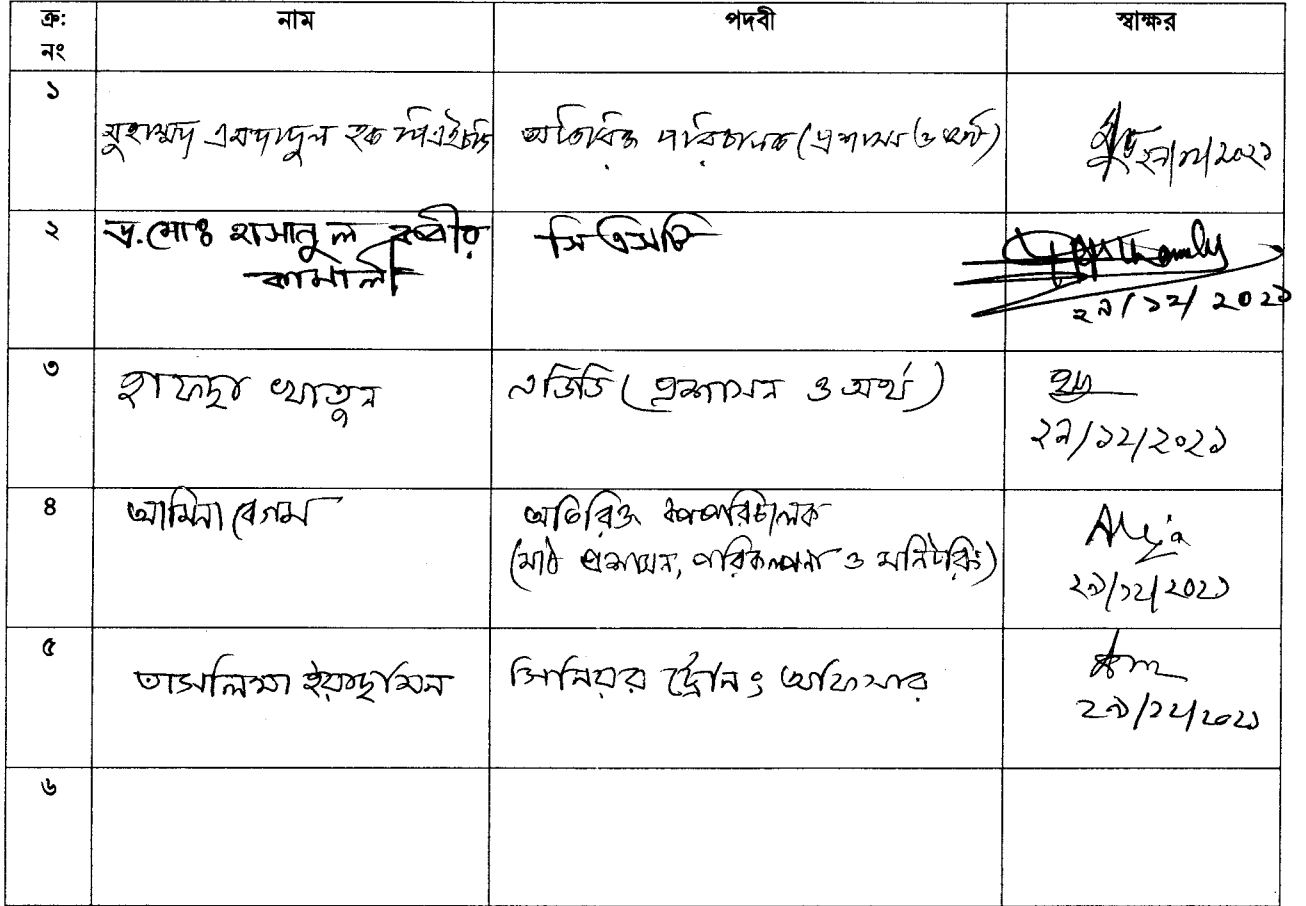 ক্র: নাম পদবী স্বাক্ষর
নং
১ মুহাম্মদ এমদাদুল হক পিএইচডি অতিরিক্ত পরিচালক (প্রশাসন ও অর্থ) ২৯/১২/২০২১
২ ড. মোঃ হাসানুল কবীর সিএসটি
কামালী ২৯/১২/২০২১
৩ হাফছা খাতুন এডিডি (প্রশাসন ও অর্থ)
২৯/১২/২০২১
৪ আমিনা বেগম অতিরিক্ত উপপরিচালক
(মাঠ প্রশাসন, পরিকল্পনা ও মনিটরিং)
২৯/১২/২০২১
৫ তাসলিমা ইয়াছমিন সিনিয়র ট্রেনিং অফিসার
২৯/১২/২০২১
৬